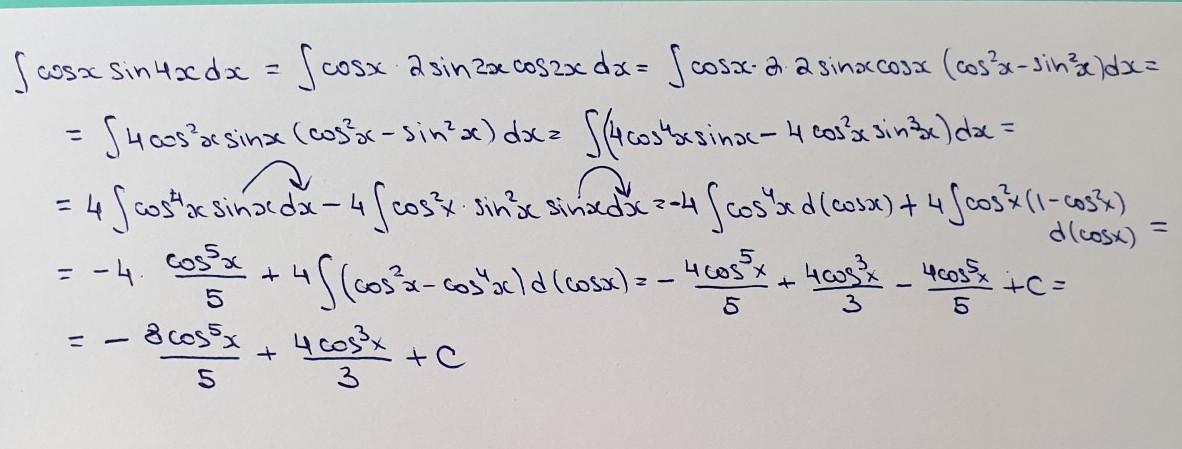 ∫ cosx sin4x dx = ∫ cosx · 2 sin2x cos2x dx = ∫ cosx · 2 · 2 sinx cosx (cos²x − sin²x) dx =
= ∫ 4 cos²x sinx (cos²x − sin²x) dx = ∫ (4 cos⁴x sinx − 4 cos²x sin³x) dx =
= 4 ∫ cos⁴x sinx dx − 4 ∫ cos²x · sin²x sinx dx = −4 ∫ cos⁴x d(cosx) + 4 ∫ cos²x (1 − cos²x) d(cosx) =
= −4 · cos⁵x/5 + 4 ∫ (cos²x − cos⁴x) d(cosx) = − 4cos⁵x/5 + 4cos³x/3 − 4cos⁵x/5 + C =
= − 8cos⁵x/5 + 4cos³x/3 + C